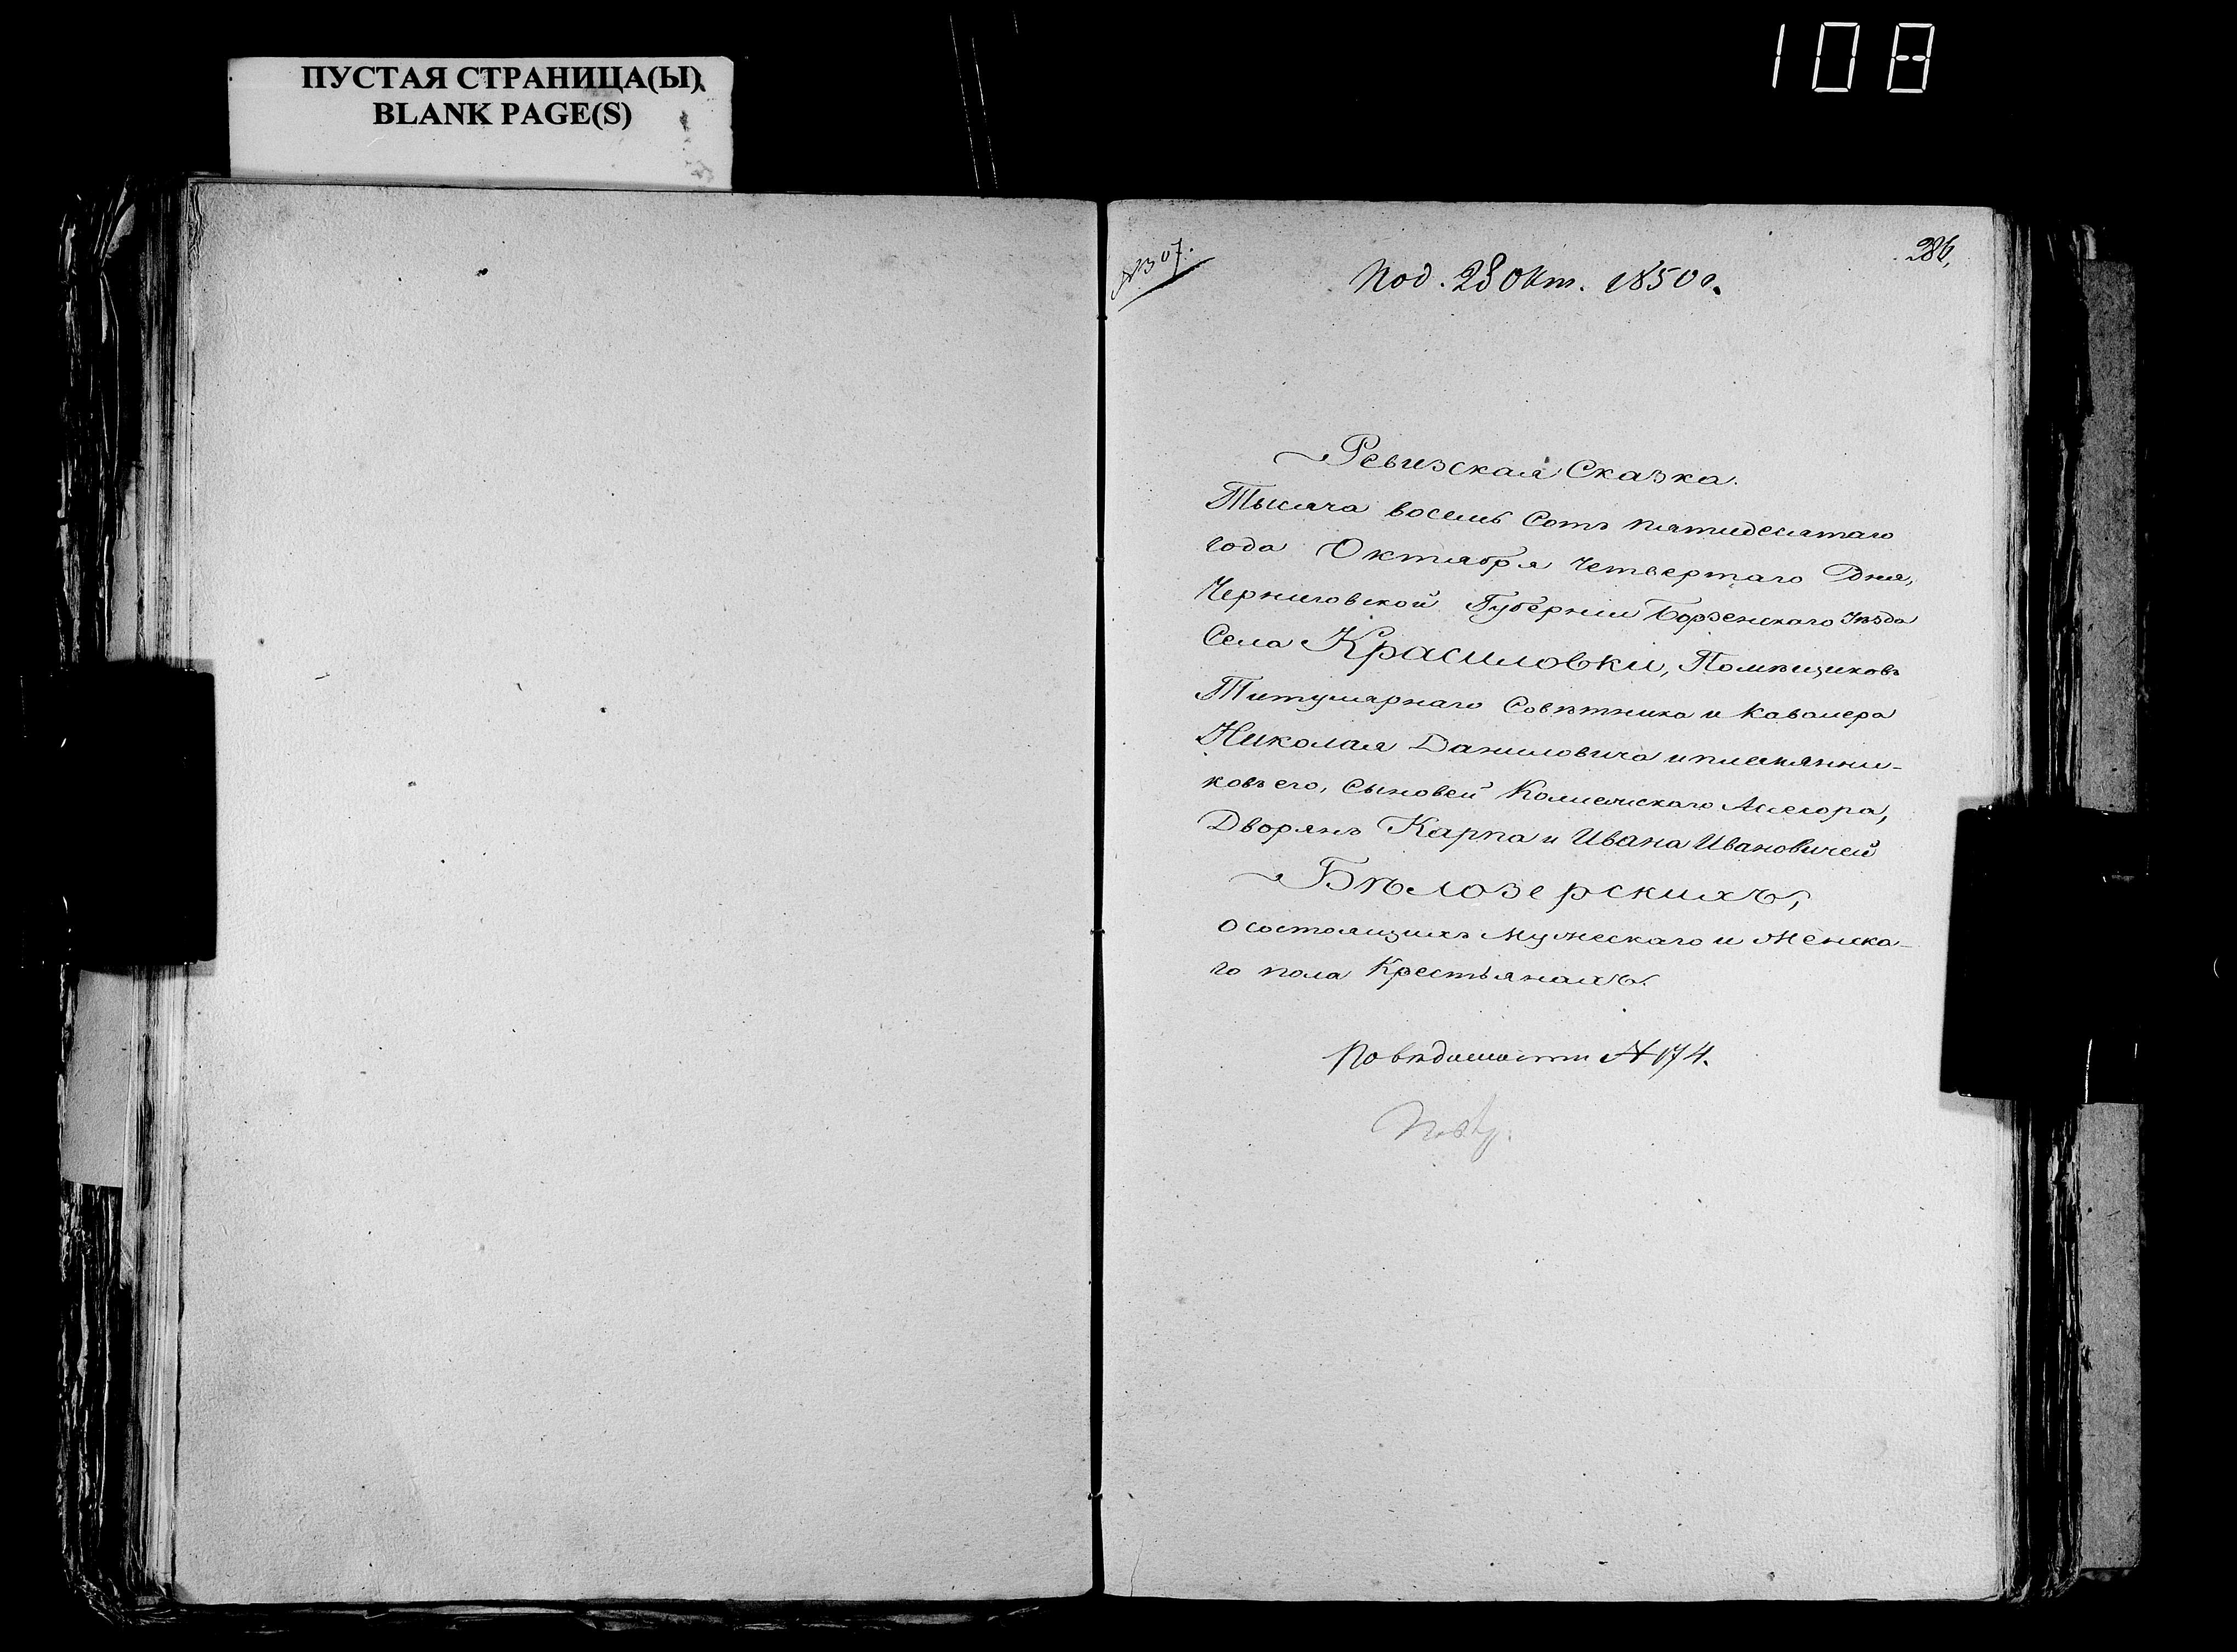 108
ПУСТАЯ СТРАНИЦА(Ы)
BLANK PAGE(S)
№307.
286,
Под. 28 Окт. 1850 г.
Ревизская Сказка.
Тысяча восемь Сотъ пятидесятаго
года Октября Четвертаго Дня,
Черниговской Губерніи Борзенскаго Уѣзда
Села Красиловки, Помѣщиковъ
Титулярнаго Совѣтника и Кавалера
Николая Даниловича и племянни-
ковъ его, Сыновей Колежскаго Асесора,
Дворянъ Карпа и Ивана Ивановичей
Бѣлозерскихъ,
о состоящихъ Мужескаго и Женска-
го пола Крестьянахъ.
По вѣдомости № 174.